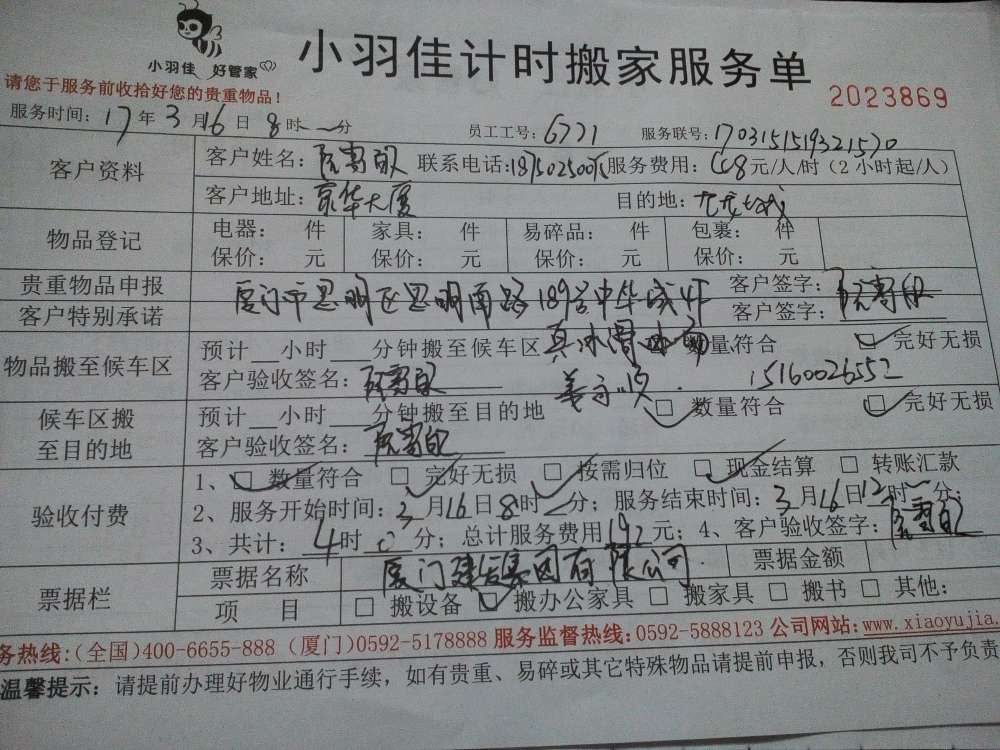 小羽佳 好管家
小羽佳计时搬家服务单
请您于服务前收拾好您的贵重物品！
2023869
服务时间：17年3月16日8时 分 员工工号：6771 服务联号：1703151519321570
客户资料
客户姓名： 联系电话：187502500 服务费用：48元/人/时（2小时起/人）
客户地址：京华大厦 目的地：
物品登记
电器： 件 家具： 件 易碎品： 件 包裹： 件
保价： 元 保价： 元 保价： 元 保价： 元
贵重物品申报 客户签字：
厦门市思明区思明南路189号中华城
客户特别承诺 客户签字：
物品搬至候车区
预计 小时 分钟搬至候车区 真冰滑冰场 数量符合 完好无损
客户验收签名： 15160026552
候车区搬至目的地
预计 小时 分钟搬至目的地 数量符合 完好无损
客户验收签名：
验收付费
1、数量符合 完好无损 按需归位 现金结算 转账汇款
2、服务开始时间：3月16日8时 分；服务结束时间：3月16日12时 分；
3、共计：4时0分；总计服务费用192元；4、客户验收签字：
票据栏
票据名称 厦门建发集团有限公司 票据金额
项 目 搬设备 搬办公家具 搬家具 搬书 其他：
务热线：(全国)400-6655-888 (厦门)0592-5178888 服务监督热线：0592-5888123 公司网站：www.xiaoyujia.
温馨提示：请提前办理好物业通行手续，如有贵重、易碎或其它特殊物品请提前申报，否则我司不予负责